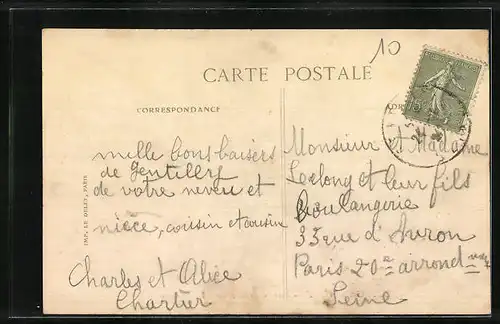 10
CARTE POSTALE
CORRESPONDANCE
ADR
mille bons baisers
de Gentilly
de votre neveu et
nièce, cousin et cousin
Charles et Alice
Chartier
Monsieur et Madame
Lelong et leur fils
Boulangerie
33 rue d'Avron
Paris 20e arrond
Seine
IMP. LE DELEY, PARIS
15